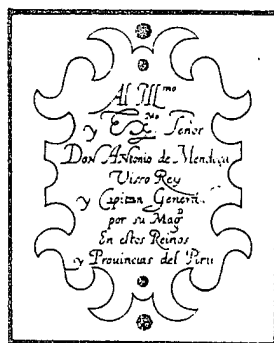 Al Ill.mo
y Ex.mo Señor
Don Antonio de Mendoça
Visso Rey
y Capitan General
por su Mag.d
En estos Reinos
y Provincias del Piru